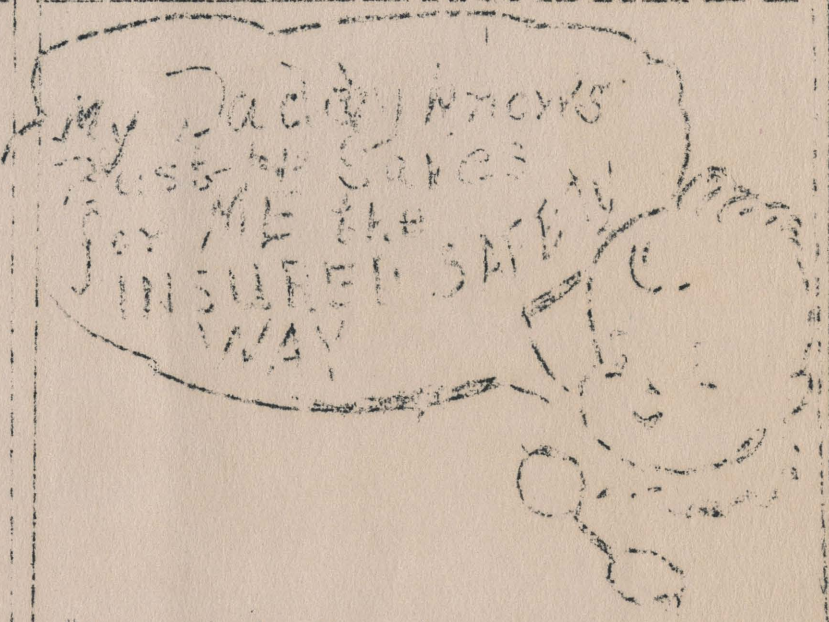 My Daddy Knows
he Saves
for ME the
INSURED SAFETY
WAY